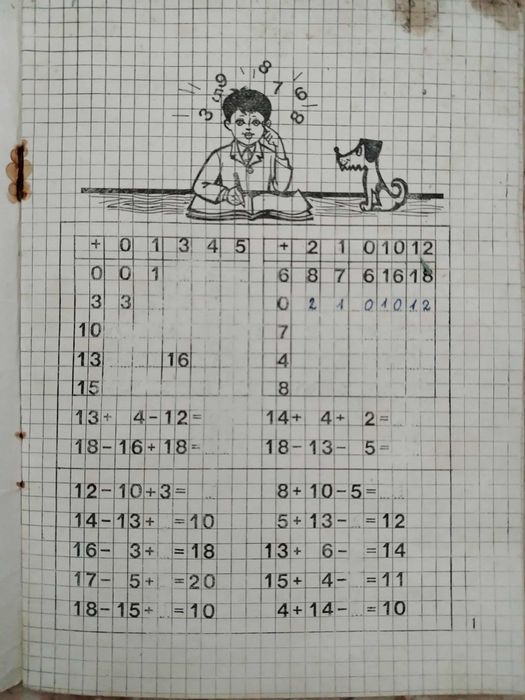 3 5 9 8 7 6 8
+ 0 1 3 4 5
0 0 1
3 3
10
13 16
15
+ 2 1 0 10 12
6 8 7 6 16 18
0 2 1 0 10 12
7
4
8
13+ 4-12=
18-16+18=
14+ 4+ 2=
18-13- 5=
12-10+3=
14-13+ =10
16- 3+ =18
17- 5+ =20
18-15+ =10
8+10-5=
5+13- =12
13+ 6- =14
15+ 4- =11
4+14- =10
1